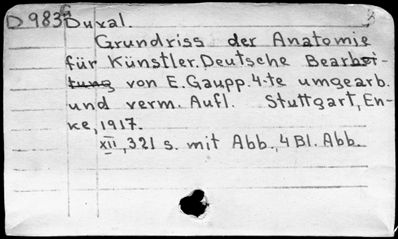 D 983 Duval.
Grundriss der Anatomie
für Künstler. Deutsche Bearbei-
tung von E. Gaupp. 4-te umgearb.
und verm. Aufl. Stuttgart, En-
ke, 1917.
XII, 321 s. mit Abb., 4 Bl. Abb.